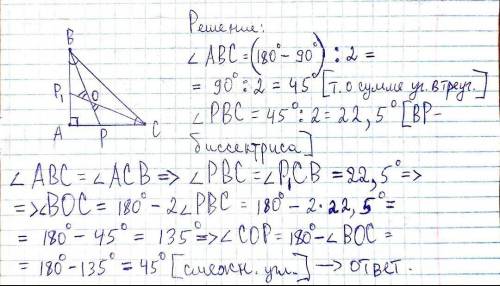 Решение:
B
∠ABC=(180°-90°):2=
= 90°:2=45° [т.о сумме уг. втреуг.]
P₁
O
∠PBC=45°:2=22,5° [BP-
A
P
C
биссектриса]
∠ABC=∠ACB=>∠PBC=∠P₁CB=22,5°=>
=>∠BOC=180°-2∠PBC=180°-2·22,5°=
= 180°-45°= 135°=>∠COP=180°-∠BOC=
=180°-135°=45° [смежн. угл.]→ответ.